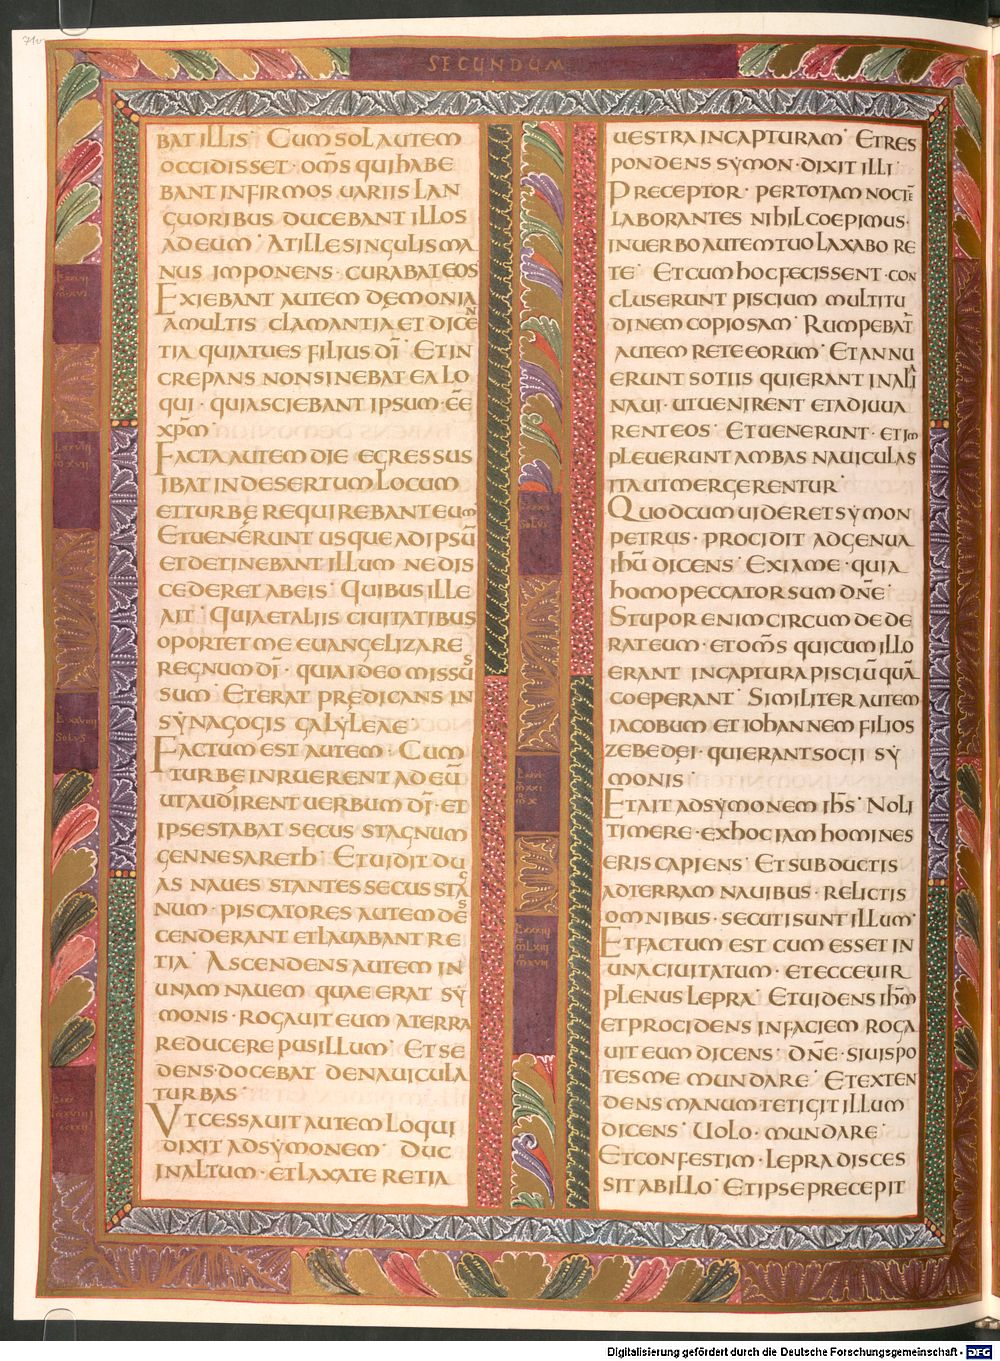 71v
SECUNDUM
BAT ILLIS· CUM SOL AUTEM
OCCIDISSET· OMS QUI HABE
BANT INFIRMOS UARIIS LAN
GUORIBUS DUCEBANT ILLOS
AD EUM· AT ILLE SINGULIS MA
NUS IMPONENS· CURABAT EOS
EXIEBANT AUTEM DĘMONIA
A MULTIS CLAMANTIA ET DICEN
TIA QUIA TU ES FILIUS DĪ· ET IN
CREPANS NON SINEBAT EA LO
QUI· QUIA SCIEBANT IPSUM· EE̅
XP̅M·
FACTA AUTEM DIE EGRESSUS
IBAT IN DESERTUM LOCUM
ET TURBĘ REQUIREBANT EUM
ET UENERUNT USQUE AD IPSŪ
ET DETINEBANT ILLUM NE DIS
CEDERET AB EIS· QUIBUS ILLE
AIT· QUIA ET ALIIS CIUITATIBUS
OPORTET ME EUANGELIZARE
REGNUM DĪ· QUIA IDEO MISSUS
SUM· ET ERAT PRĘDICANS IN
SẎNAGOGIS GALẎLEAE·
FACTUM EST AUTEM· CUM
TURBĘ INRUERENT AD EŪ
UT AUDIRENT UERBUM DĪ· ET
IPSE STABAT SECUS STAGNUM
GENNESARETH· ET UIDIT DU
AS NAUES STANTES SECUS STAG
NUM· PISCATORES AUTEM DES
CENDERANT ET LAUABANT RE
TIA· ASCENDENS AUTEM IN
UNAM NAUEM QUAE ERAT SẎ
MONIS· ROGAUIT EUM A TERRA
REDUCERE PUSILLUM· ET SE
DENS· DOCEBAT DE NAUICULA
TURBAS·
UT CESSAUIT AUTEM LOQUI
DIXIT AD SẎMONEM· DUC
IN ALTUM· ET LAXATE RETIA
UESTRA IN CAPTURAM· ET RES
PONDENS SẎMON· DIXIT ILLI·
PRECEPTOR· PER TOTAM NOCTĒ
LABORANTES NIHIL COEPIMUS·
IN UERBO AUTEM TUO LAXABO RE
TE· ET CUM HOC FECISSENT· CON
CLUSERUNT PISCIUM MULTITU
DINEM COPIOSAM· RUMPEBAT̅
AUTEM RETE EORUM· ET ANNU
ERUNT SOTIIS QUI ERANT IN ALIA
NAUI· UT UENIRENT ET ADIUUA
RENT EOS· ET UENERUNT· ET IM
PLEUERUNT AMBAS NAUICULAS
ITA UT MERGERENTUR·
QUOD CUM UIDERET SẎMON
PETRUS· PROCIDIT AD GENUA
IHŪ DICENS· EXI A ME· QUIA
HOMO PECCATOR SUM DN̅E·
STUPOR ENIM CIRCUMDEDE
RAT EUM· ET OM̅S QUI CUM ILLO
ERANT IN CAPTURA PISCIŪ QUĀ
COEPERANT· SIMILITER AUTEM
IACOBUM ET IOHANNEM FILIOS
ZEBEDĘI· QUI ERANT SOCII SẎ
MONIS·
ET AIT AD SẎMONEM IH̅S· NOLI
TIMERE· EX HOC IAM HOMINES
ERIS CAPIENS· ET SUBDUCTIS
AD TERRAM NAUIBUS· RELICTIS
OMNIBUS· SECUTI SUNT ILLUM·
ET FACTUM EST CUM ESSET IN
UNA CIUITATUM· ET ECCE UIR
PLENUS LEPRA· ET UIDENS IH̅M
ET PROCIDENS IN FACIEM ROGA
UIT EUM DICENS· DN̅E· SI UIS PO
TES ME MUNDARE· ET EXTEN
DENS MANUM· TETIGIT ILLUM
DICENS· UOLO· MUNDARE·
ET CONFESTIM· LEPRA DISCES
SIT AB ILLO· ET IPSE PRECEPIT
Digitalisierung gefördert durch die Deutsche Forschungsgemeinschaft - DFG